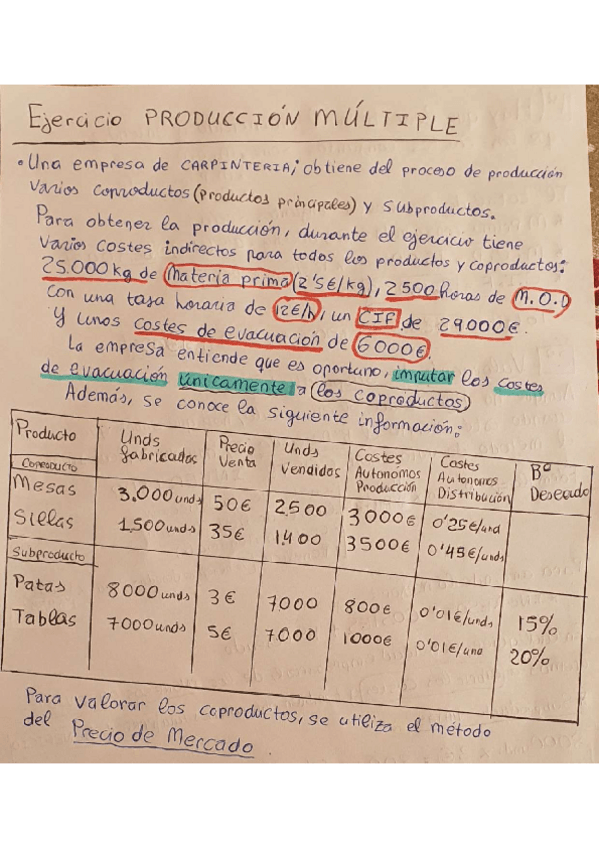 Ejercicio PRODUCCIÓN MÚLTIPLE
• Una empresa de CARPINTERIA; obtiene del proceso de producción
varios coproductos (productos principales) y subproductos.
Para obtener la producción, durante el ejercicio tiene
varios costes indirectos para todos los productos y coproductos:
25.000 kg de materia prima (2'5€/kg), 2500 horas de M.O.D
con una tasa horaria de 12€/h, un CIF de 29.000€.
Y unos costes de evacuación de 6000€.
La empresa entiende que es oportuno, imputar los costes
de evacuación únicamente a los coproductos
Además, se conoce la siguiente información:
Producto Unds fabricadas Precio Venta Unds vendidos Costes Autonomos Producción Costes Autonomos Distribución Bº Deseado
Coproducto
Mesas 3.000 unds 50€ 2500 3000€ 0'25€/und
Sillas 1.500 unds 35€ 1.400 3500€ 0'45€/unds
Subproducto
Patas 8000 unds 3€ 7000 800€ 0'01€/unds 15%
Tablas 7000 unds 5€ 7000 1000€ 0'01€/und 20%
Para valorar los coproductos, se utiliza el metodo
del Precio de Mercado.